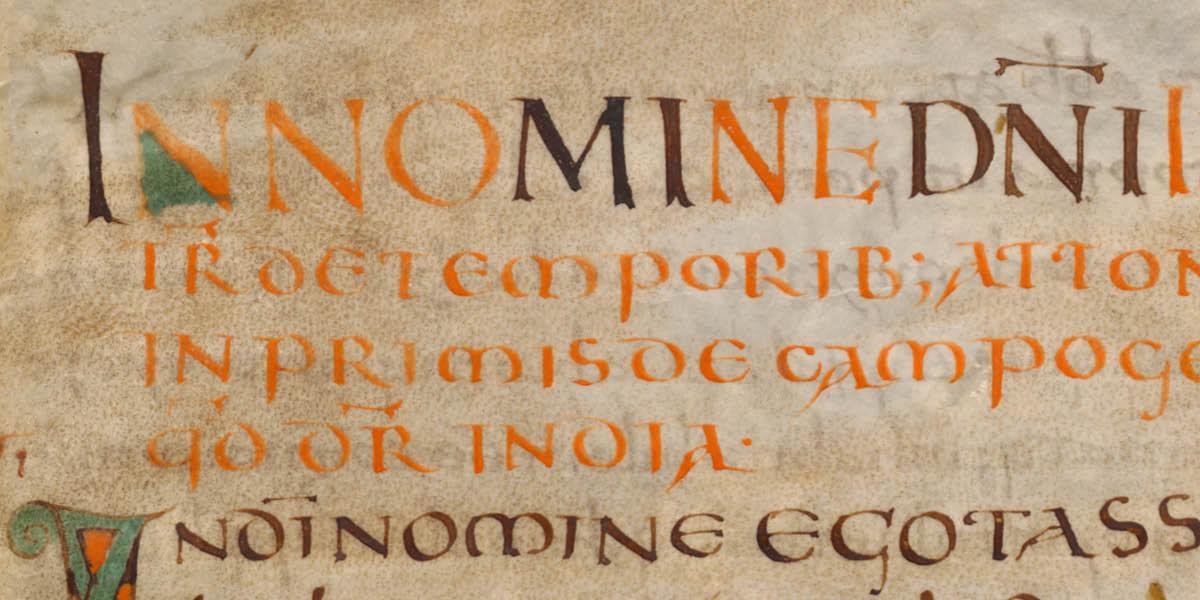 IN NOMINE DN̄I I
TR̄ DE TEMPORIB; ATTON
IN PRIMIS DE CAMPO GE
QŌ DR̄ INDIA·
IN DĪ NOMINE EGO TASS